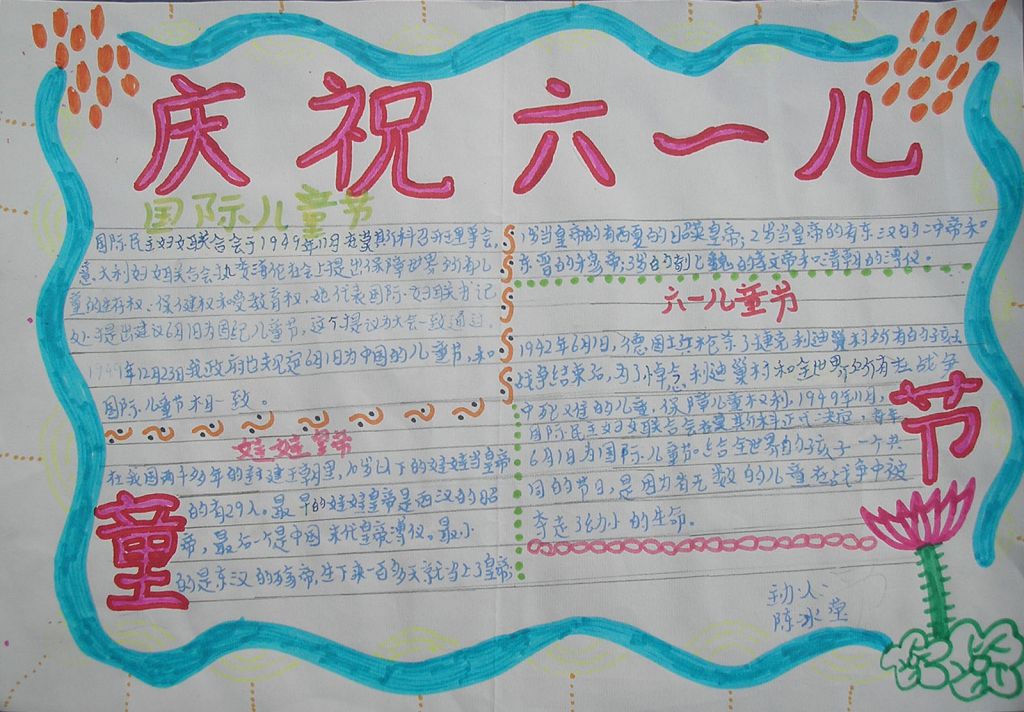 庆祝六一儿
童
节
国际儿童节
国际民主妇女联合会于1949年11月在莫斯科召开理事会,
意大利妇女联合会执委
会上提出保障世界所有儿
童的生存权、保健权和受教育权,她代表国际妇联书记
处,提出建议6月1日为国际儿童节,这个提议为大会一致通过。
1949年12月23日我政府也规定6月1日为中国的儿童节,和
国际儿童节相一致。
娃娃皇帝
在我国两千多年的封建王朝里,10岁以下的娃娃当皇帝
的有29人。最早的娃娃皇帝是西汉的昭
帝,最后一个是中国末代皇帝溥仪。最小
的是东汉的殇帝,生下来一百多天就当上了皇帝;
1岁当皇帝的有西夏的
皇帝;2岁当皇帝的有东汉的冲帝和
东晋的穆帝;3岁的
魏的孝文帝和清朝的溥仪。
六一儿童节
1942年6月1日,德国
捷克利迪策村所有的孩子
战争结束后,为了悼念利迪策村和全世界所有在战争
中死难的儿童,保障儿童权利,1949年11月,
国际民主妇女联合会在莫斯科正式决定,每年
6月1日为国际儿童节。给全世界的孩子一个共
同的节日,是因为有无数的儿童在战争中被
夺走弱小的生命。
主办人:
陈冰莹